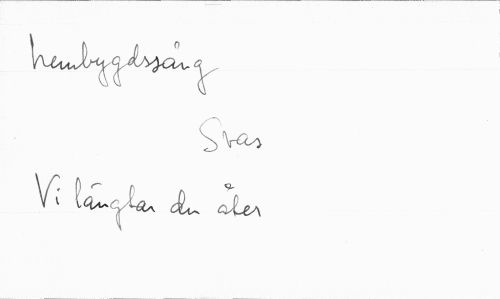 hembygdssång
Svas
Vi längtar du åter